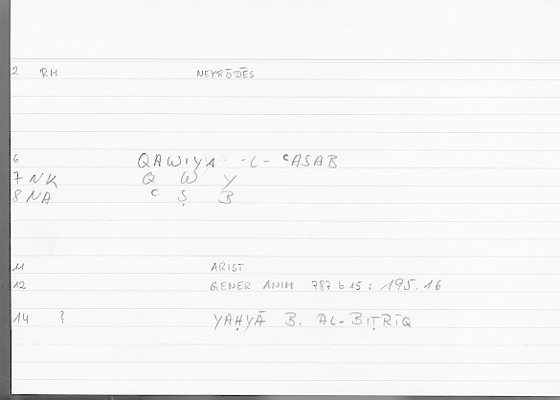 2 RM NEYRŌDĒS
6 QAWIYA -L- ᶜASAB
7 NK Q W Y
8 NA ᶜ Ṣ B
11 ARIST
12 GENER ANIM 787 b 15 : 195.16
14 ? YAḤYĀ B. AL-BIṬRĪQ